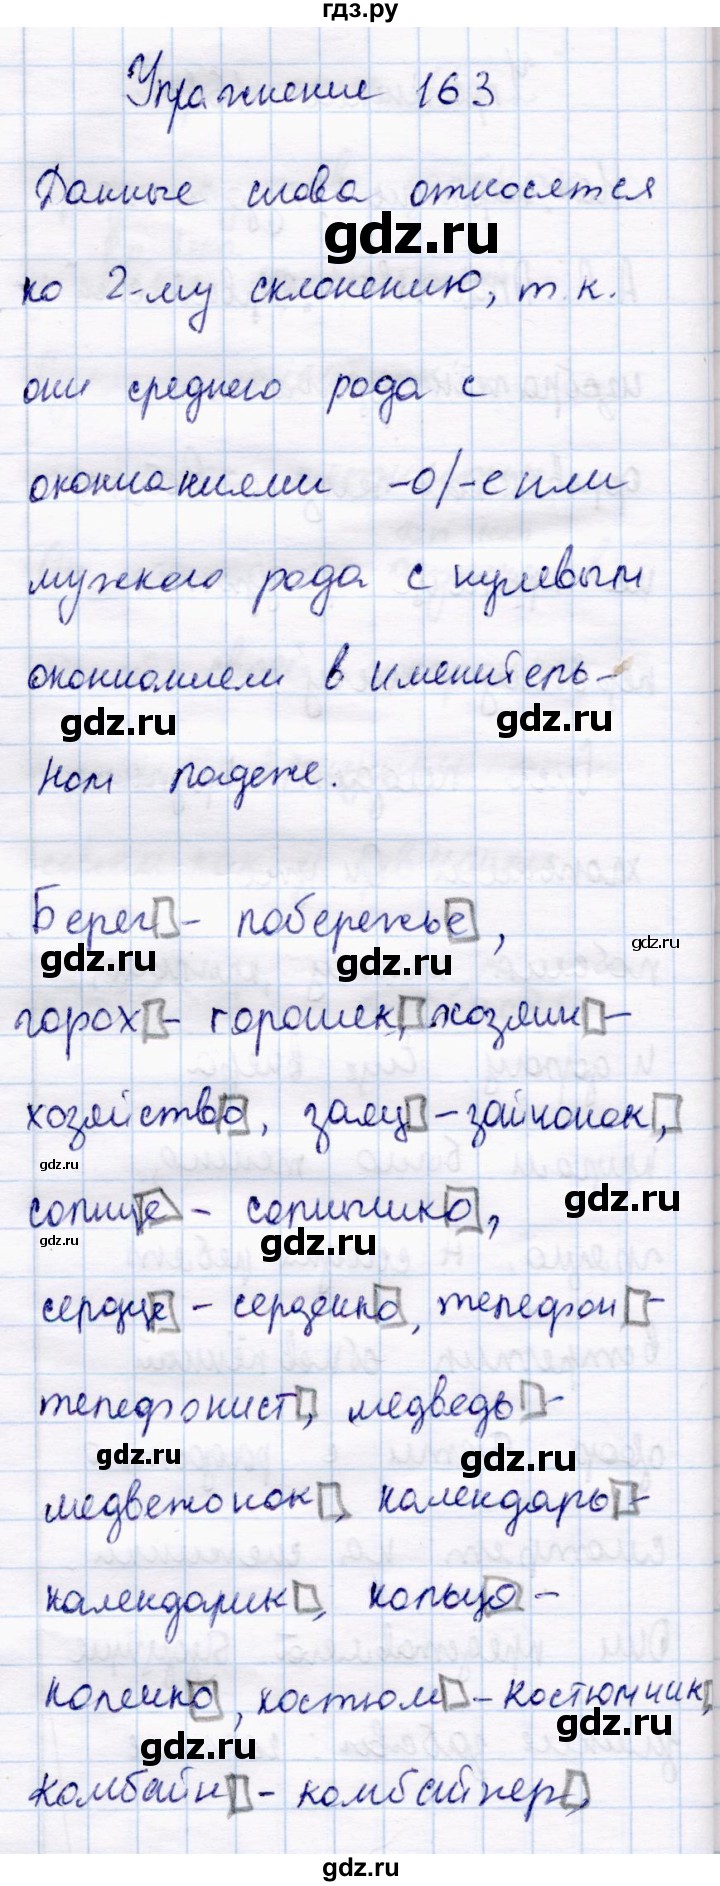 гдз.ру
Упражнение 163
Данные слова относятся
gdz.ru
ко 2-му склонению, т.к.
они среднего рода с
окончаниями -о/-е или
мужского рода с нулевым
окончанием в именитель-
gdz.ru
gdz.ru
ном падеже.
Берег - побережье,
gdz.ru
gdz.ru
gdz.ru
горох - горошек, хозяин -
хозяйство, заяц - зайчонок,
gdz.ru
gdz.ru
солнце - солнышко,
gdz.ru
gdz.ru
сердце - сердечко, телефон -
телефонист, медведь -
gdz.ru
gdz.ru
медвежонок, календарь -
календарик, кольцо -
колечко, костюм - костюмчик,
gdz.ru
gdz.ru
комбайн - комбайнер,
gdz.ru